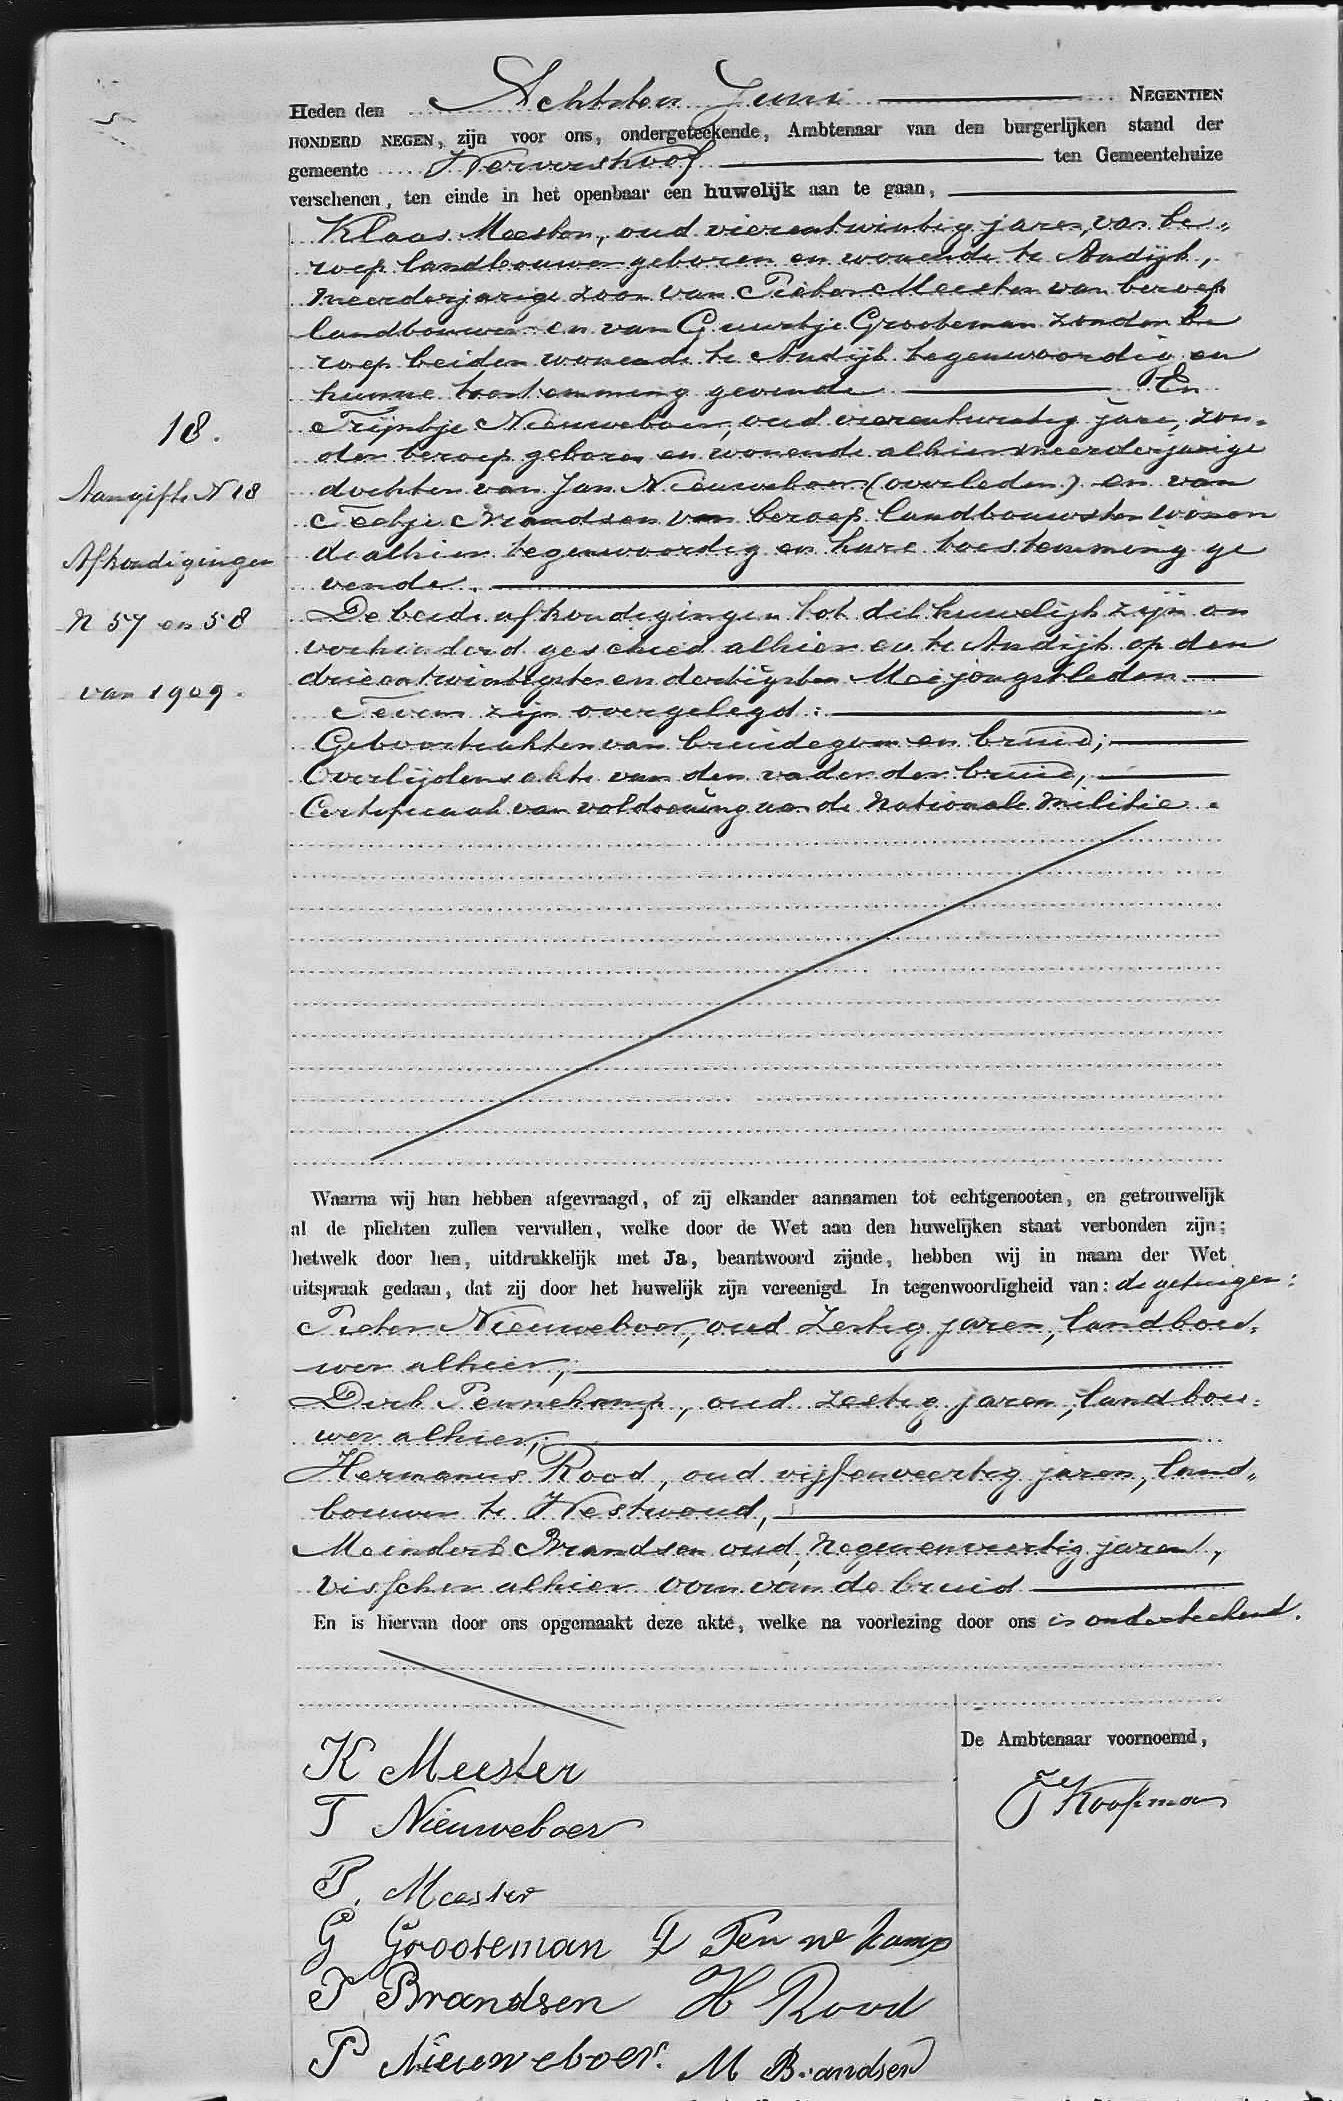 Heden den Achtsten Juni NEGENTIEN
HONDERD NEGEN, zijn voor ons, ondergeteekende, Ambtenaar van den burgerlijken stand der
gemeente Wervershoof ten Gemeentehuize
verschenen, ten einde in het openbaar een huwelijk aan te gaan,
Klaas Meester, oud vierentwintig jaren, van be„
roep landbouwer geboren en wonende te Andijk,
meerderjarige zoon van Pieter Meester van beroep
landbouwer en van Guurtje Grooteman zonder be
roep beiden wonende te Andijk tegenwoordig en
hunne toestemming gevende En
18.
Trijntje Nieuweboer, oud vierentwintig jare, zon„
der beroep geboren en wonende alhier meerderjarige
Aangifte N 18
dochter van Jan Nieuweboer (overleden) en van
Brandsen van beroep landbouwster wonen
Afkondigingen
de alhier tegenwoordig en hare toestemming ge
vende.
N 57 en 58
De beide afkondigingen tot dit huwelijk zijn on
verhinderd geschied alhier en te Andijk op den
van 1909.
drieentwintigsten en dertigsten Mei jongstleden
Tevens zijn overgelegd:
Geboorteakten van bruidegom en bruid;
Overlijdensakte van den vader der bruid,
Certificaat van voldoening aan de Nationale Militie.
Waarna wij hun hebben afgevraagd, of zij elkander aannamen tot echtgenooten, en getrouwelijk
al de plichten zullen vervullen, welke door de Wet aan den huwelijken staat verbonden zijn;
hetwelk door hen, uitdrukkelijk met Ja, beantwoord zijnde, hebben wij in naam der Wet
uitspraak gedaan, dat zij door het huwelijk zijn vereenigd. In tegenwoordigheid van: de getuigen:
Pieter Nieuweboer, oud zestig jaren, landbou„
wer alhier,
Dirk Pennekamp, oud zestig jaren, landbou„
wer alhier,
Hermanus Rood, oud vijfenveertig jaren, land„
bouwer te Westwoud,
Meindert Brandsen oud, negenenveertig jaren,
visscher alhier oom van de bruid
En is hiervan door ons opgemaakt deze akte, welke na voorlezing door ons is onderteekend.
De Ambtenaar voornoemd,
K Meester
J Koopman
T Nieuweboer
P. Meester
G Grooteman D Pennekamp
T Brandsen H Rood
P Nieuweboer. M Brandsen